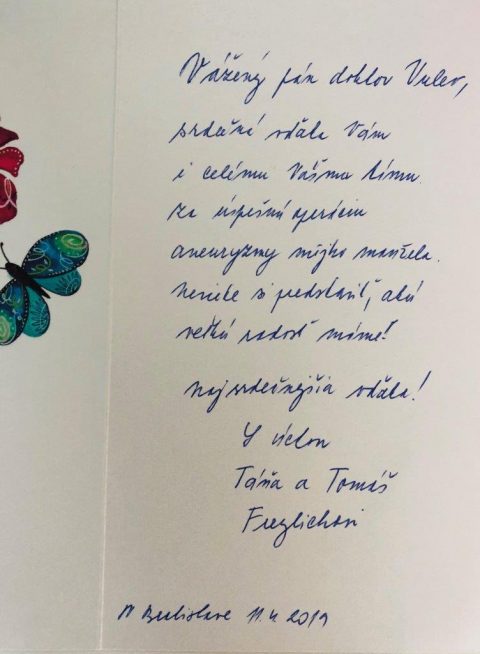 Vážený pán doktor Vulev,
srdečná vďaka Vám
i celému Vášmu tímu
za úspešnú operáciu
aneuryzmy môjho manžela.
Neviete si predstaviť, akú
veľkú radosť máme!
Najsrdečnejšia vďaka!
S úctou
Táňa a Tomáš
V Bratislave 11.4.2019